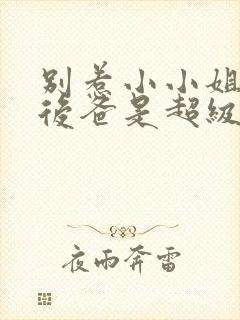 别惹小小姐
後爸是超級
夜雨奔雷